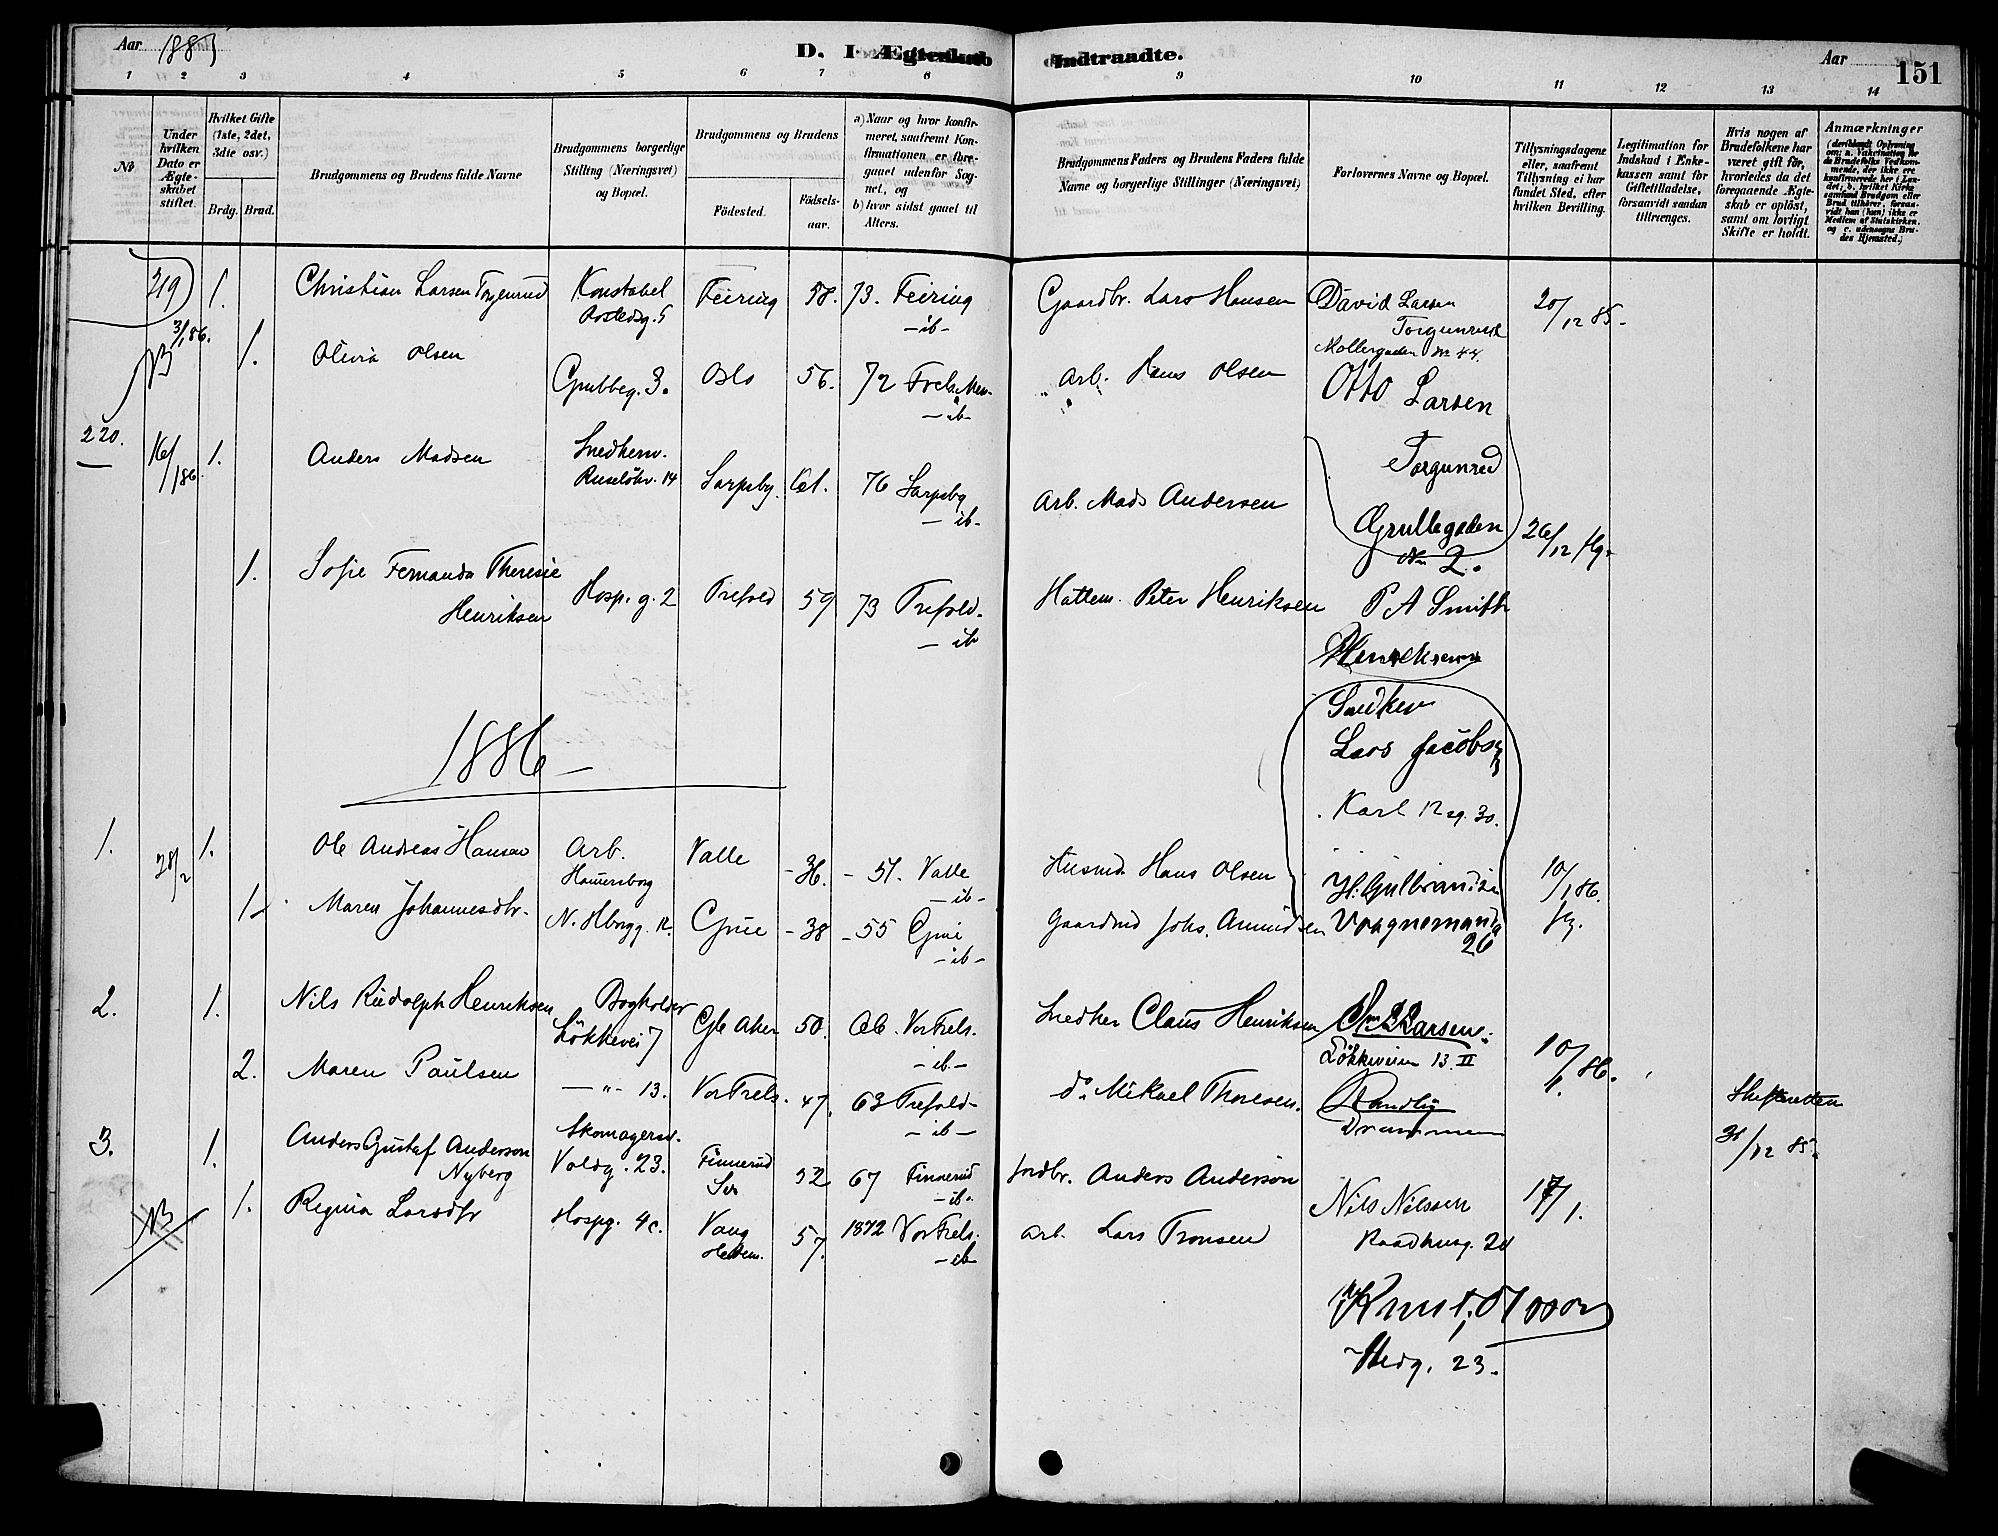 Aar 1885
D. I Ægteskab Indtraadte.
Aar
151
1 2 3 4 5 6 7 8 9 10 11 12 13 14
No
Under hvilken Dato er Ægteskabet stiftet.
Hvilket Gifte (1ste, 2det, 3die osv.)
Brdg. Brud.
Brudgommens og Brudens fulde Navne
Brudgommens borgerlige Stilling (Næringsvei) og Bopæl.
Brudgommens og Brudens
Fødested.
Fødsels-aar.
a) Naar og hvor konfirmeret, saafremt Konfirmationen er foregaaet udenfor Sognet, og
b) hvor sidst gaaet til Alters.
Brudgommens Faders og Brudens Faders fulde Navne og borgerlige Stillinger (Næringsvei)
Forlovernes Navne og Bopæl.
Tillysningsdagene eller, saafremt Tillysning ei har fundet Sted, efter hvilken Bevilling.
Legitimation for Indskud i Enkekassen samt for Giftetilladelse, forsaavidt saadan tiltrænges.
Hvis nogen af Brudefolkene har været gift før, hvorledes da det foregaaende Ægteskab er opløst, samt om lovligt Skifte er holdt.
Anmærkninger
(deriblandt Oplysning om: a. Vaksination for de Brudefolks Vedkommende, der ikke ere konfirmerede her i Landet; b. hvilket Kirkesamfund Brudgom eller Brud tilhører, forsaavidt han (hun) ikke er Medlem af Statskirken, og c. udensogns Brudes Hjemsted.)
219 1. Christian Larsen Torgenrud Konstabel Feiring 58. 73. Feiring Gaardbr. Lars Hansen David Larsen 20/12 85.
- ib - Torgunrud
3/1 86. Møllergaden No 44.
NB 1. Olivia Olsen Grubbeg. 3. Oslo 56. 72 Frels. Men. Arb. Hans Olsen Otto Larsen
- ib -
220. 16/1 86. 1. Anders Madsen Snedkersv. Sarpsby. 61. 76 Sarpsby Arb. Mads Andersen Torgunrud
Ruseløkv. 14 - ib - Grubbegaden No 2. 26/12 fg.
1. Sofie Fernanda Theresie Henriksen Hosp. g. 2 Trefold 59 73 Trefold. Hattem. Peter Henriksen P A Smith
- ib
Henreksen
Snidker
Lars Jacobsen
Karl 12 g. 30.
1886
1. 28/2 1. Ole Andreas Hansen Arb. Valle - 36. - 51. Valle Husmd. Hans Olsen H. Gulbrandsen 10/1 86.
Hamersborg - ib -
1. Maren Johannesdtr. N. Hbrgg. 12. Grue - 38 - 55 Grue Gaardmd Johs. Amundsen Vognmandsg 26 fg.
- ib -
2. 1. Nils Rudolph Henriksen Bogholder Gle Aker 50. 66. Vor Frels. Snedker Claus Henriksen Larsen.
Løkkevei 7 - ib - Løkkeveien 13. II 10/1 86.
2. Maren Paulsen - " - 13. Vor Frels. 47. 63 Trefold - do. Mikael Thoresen. Drammen Skifteretten
- ib - 31/12 85.
3. 1. Anders Gustaf Anderson Nyberg Skomagersv. Voldg. 23. Finnerud Sv. 52. 67 Finnerud Jordbr. Anders Anderson Nils Nilssen 17/1.
- ib - Raadhusg. 20
NB 1. Regina Larsdtr Hospg. 4c. Vang Hedem. 57. 1872 Vor Frels. Arb. Lars Tronsen
- ib
Knut Mooor
23.